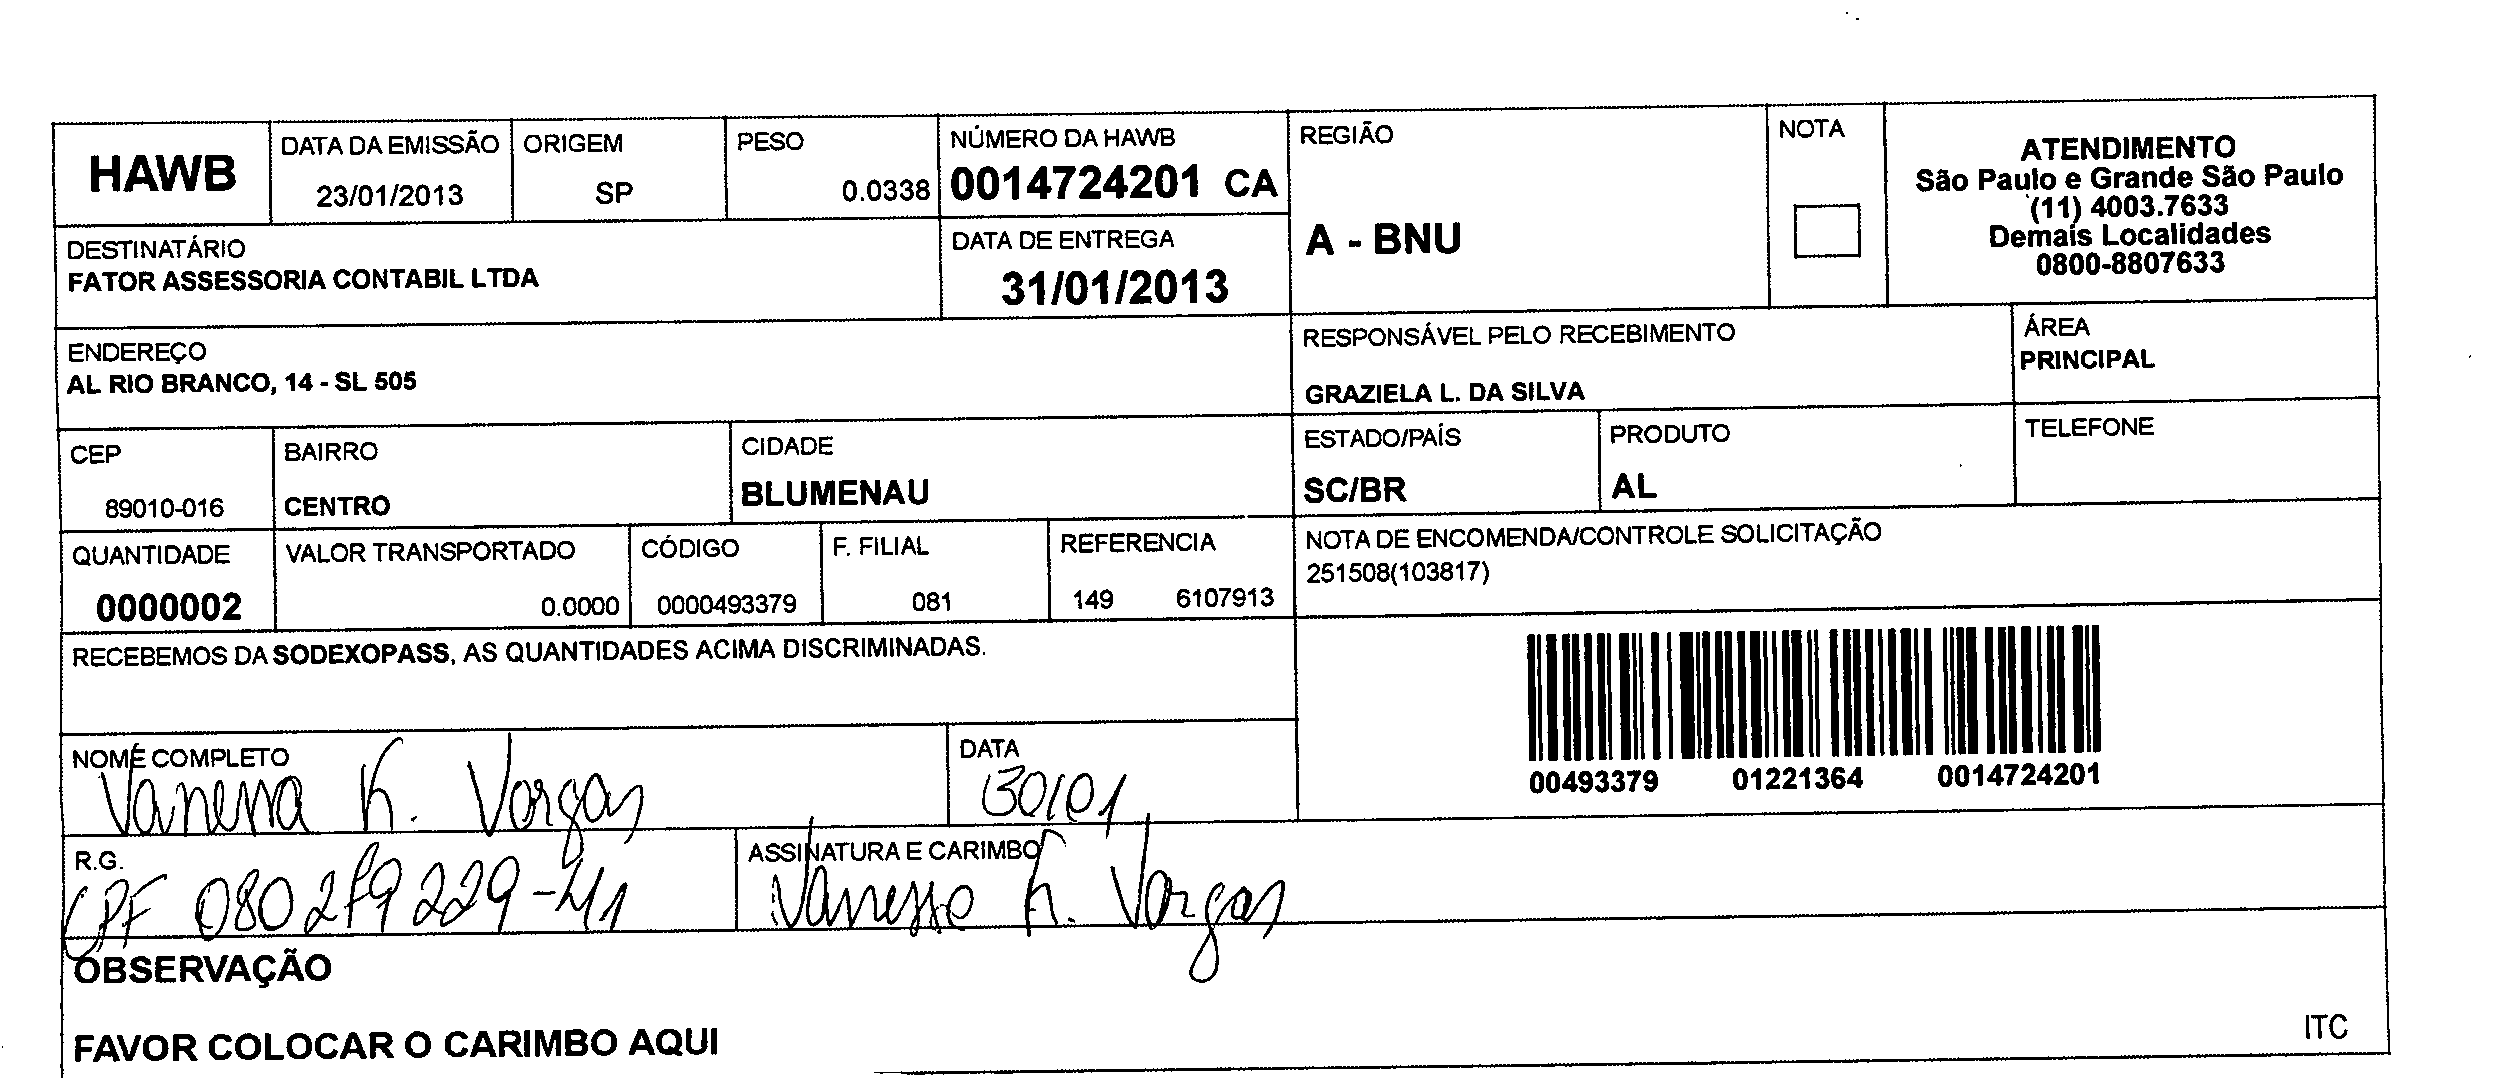 HAWB
DATA DA EMISSÃO
23/01/2013
ORIGEM
SP
PESO
0.0338
NÚMERO DA HAWB
0014724201 CA
REGIÃO
A - BNU
NOTA
ATENDIMENTO
São Paulo e Grande São Paulo
(11) 4003.7633
Demais Localidades
0800-8807633
DESTINATÁRIO
FATOR ASSESSORIA CONTABIL LTDA
DATA DE ENTREGA
31/01/2013
ENDEREÇO
AL RIO BRANCO, 14 - SL 505
RESPONSÁVEL PELO RECEBIMENTO
GRAZIELA L. DA SILVA
ÁREA
PRINCIPAL
CEP
89010-016
BAIRRO
CENTRO
CIDADE
BLUMENAU
ESTADO/PAÍS
SC/BR
PRODUTO
AL
TELEFONE
QUANTIDADE
0000002
VALOR TRANSPORTADO
0.0000
CÓDIGO
0000493379
F. FILIAL
081
REFERENCIA
149 6107913
NOTA DE ENCOMENDA/CONTROLE SOLICITAÇÃO
251508(103817)
RECEBEMOS DA SODEXOPASS, AS QUANTIDADES ACIMA DISCRIMINADAS.
00493379 01221364 0014724201
NOME COMPLETO
Vanessa K. Vargas
DATA
30/01
R.G.
CPF 080279229-41
ASSINATURA E CARIMBO
Vanessa K. Vargas
OBSERVAÇÃO
FAVOR COLOCAR O CARIMBO AQUI
ITC